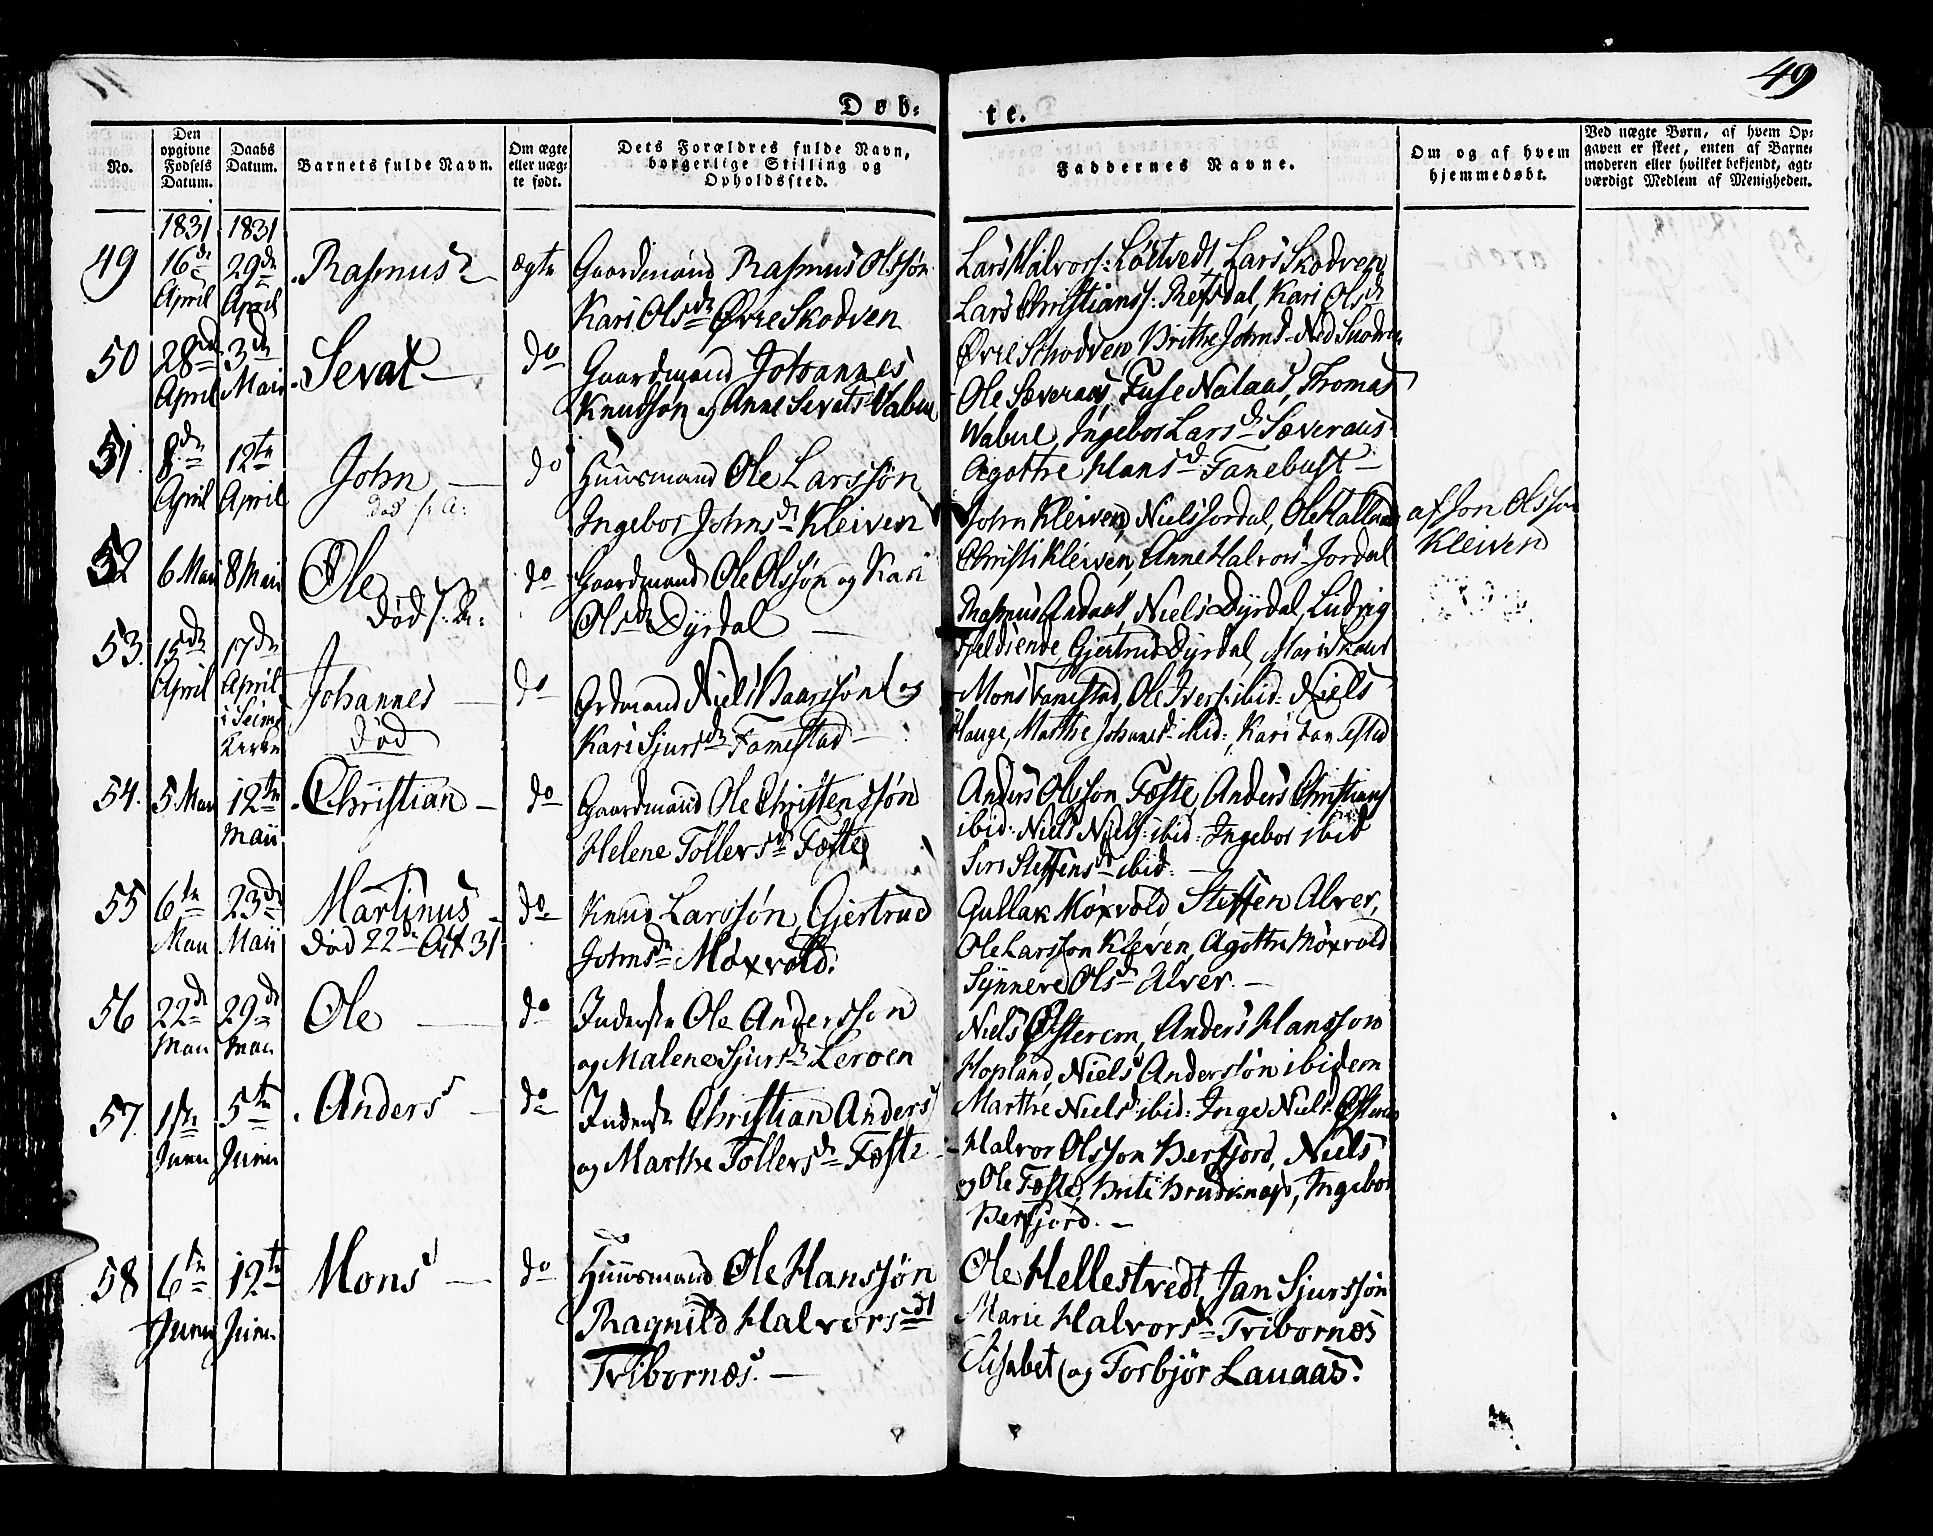 49
Døb-
te.
No.
Den opgivne Fødsels Datum.
Daabs Datum.
Barnets fulde Navn.
Om ægte eller uægte født.
Dets Forældres fulde Navn, borgerlige Stilling og Opholdssted.
Faddernes Navne.
Om og af hvem hjemmedøbt.
Ved uægte Børn, af hvem Opgaven er skeet, enten af Barnemoderen eller hvilket bekjendt, agtværdigt Medlem af Menigheden.
1831 1831
49 16de April 29de April Rasmus ægte
Gaardmand Rasmus Olssøn
Kari Olsdr Øvre Skodven
Lars Halvors: Løtvedt, Lars Skodven
Lars Christians: Refsdal, Kari Olsdr
Øvre Schodven, Brithe Johnsd Ned Skodven
50 28de April 3die Maii Sevat do
Gaardmand Johannes
Knudsøn og Anne Sevatsd Vabue
Ole Sæveraas, Fuse Nataas, Thomas
Wabue, Ingebor Larsd Sæveraas
Agothe Hansd Fanebust
51. 8de April 12te April John do
død s. A:
Huusmand Ole Larssøn
Ingebor Johnsdr Kleiven
John Kleiven, Niels Jordal, Ole Hatland
Christi Kleiven, Anne Halvors Jordal
af Jon Olsson
Kleiven
52 6 Maii 8 Maii Ole do
død s. A:
Gaardmand Ole Olssøn og Kari
Olsdr Dyrdal
Rasmus Andaas, Niels Dyrdal, Ludvig
Gjertrud Dyrdal, Mari
53. 15de April 17de April i Seims Kirke Johannes do
død
Niels Haarssøn og
Kari Sjursdr Famestad
Mons Famestad, Ole Ivers: ibid: Niels
Hauge, Marthe Johansd ibid:, Kari Famestad
54. 5 Maii 12te Maii Christian do
Gaardmand Ole Christenssøn
Helene Tollersdr Fæste
Anders Olsson Fæste, Anders Christians
ibid: Niels Niels: ibid: Ingebor ibid
Siri Steffensdr ibid:
55 6te Maii 23de Maii Martinus do
død 22de Oct 31
Knud Larssøn, Gjertrud
Johnsdr Moxvold.
Gullak Moxvold Steffen Alver,
Ole Larsson Kleiven, Agothe Moxvold
Synneve Olsd Alver.
56 22de Maii 29de Maii Ole do
Inderste Ole Andersson
og Malene Sjursdr Leroen
Niels Østerem, Anders Hansson
Hopland, Niels Anderssøn ibidem
Marthe Niels: ibid: Inge Niels Østerem
57. 1ste Junii 5te Junii Anders do
Inderste Christian Anders
og Marthe Tollersdr Fæste
Halvor Olsson Berfjord, Niels
og Ole Fæste, Brite Brudknap, Ingebor
Berfjord.
58 6te Junii 12te Junii Mons do
Huusmand Ole Hanssøn
Ragnild Halvorsdt
Tribornæs.
Ole Hellestvedt, Jan Sjurssøn
Marie Halvorsdr Tribornæs
Elisabet og Torbjør Lauaas.